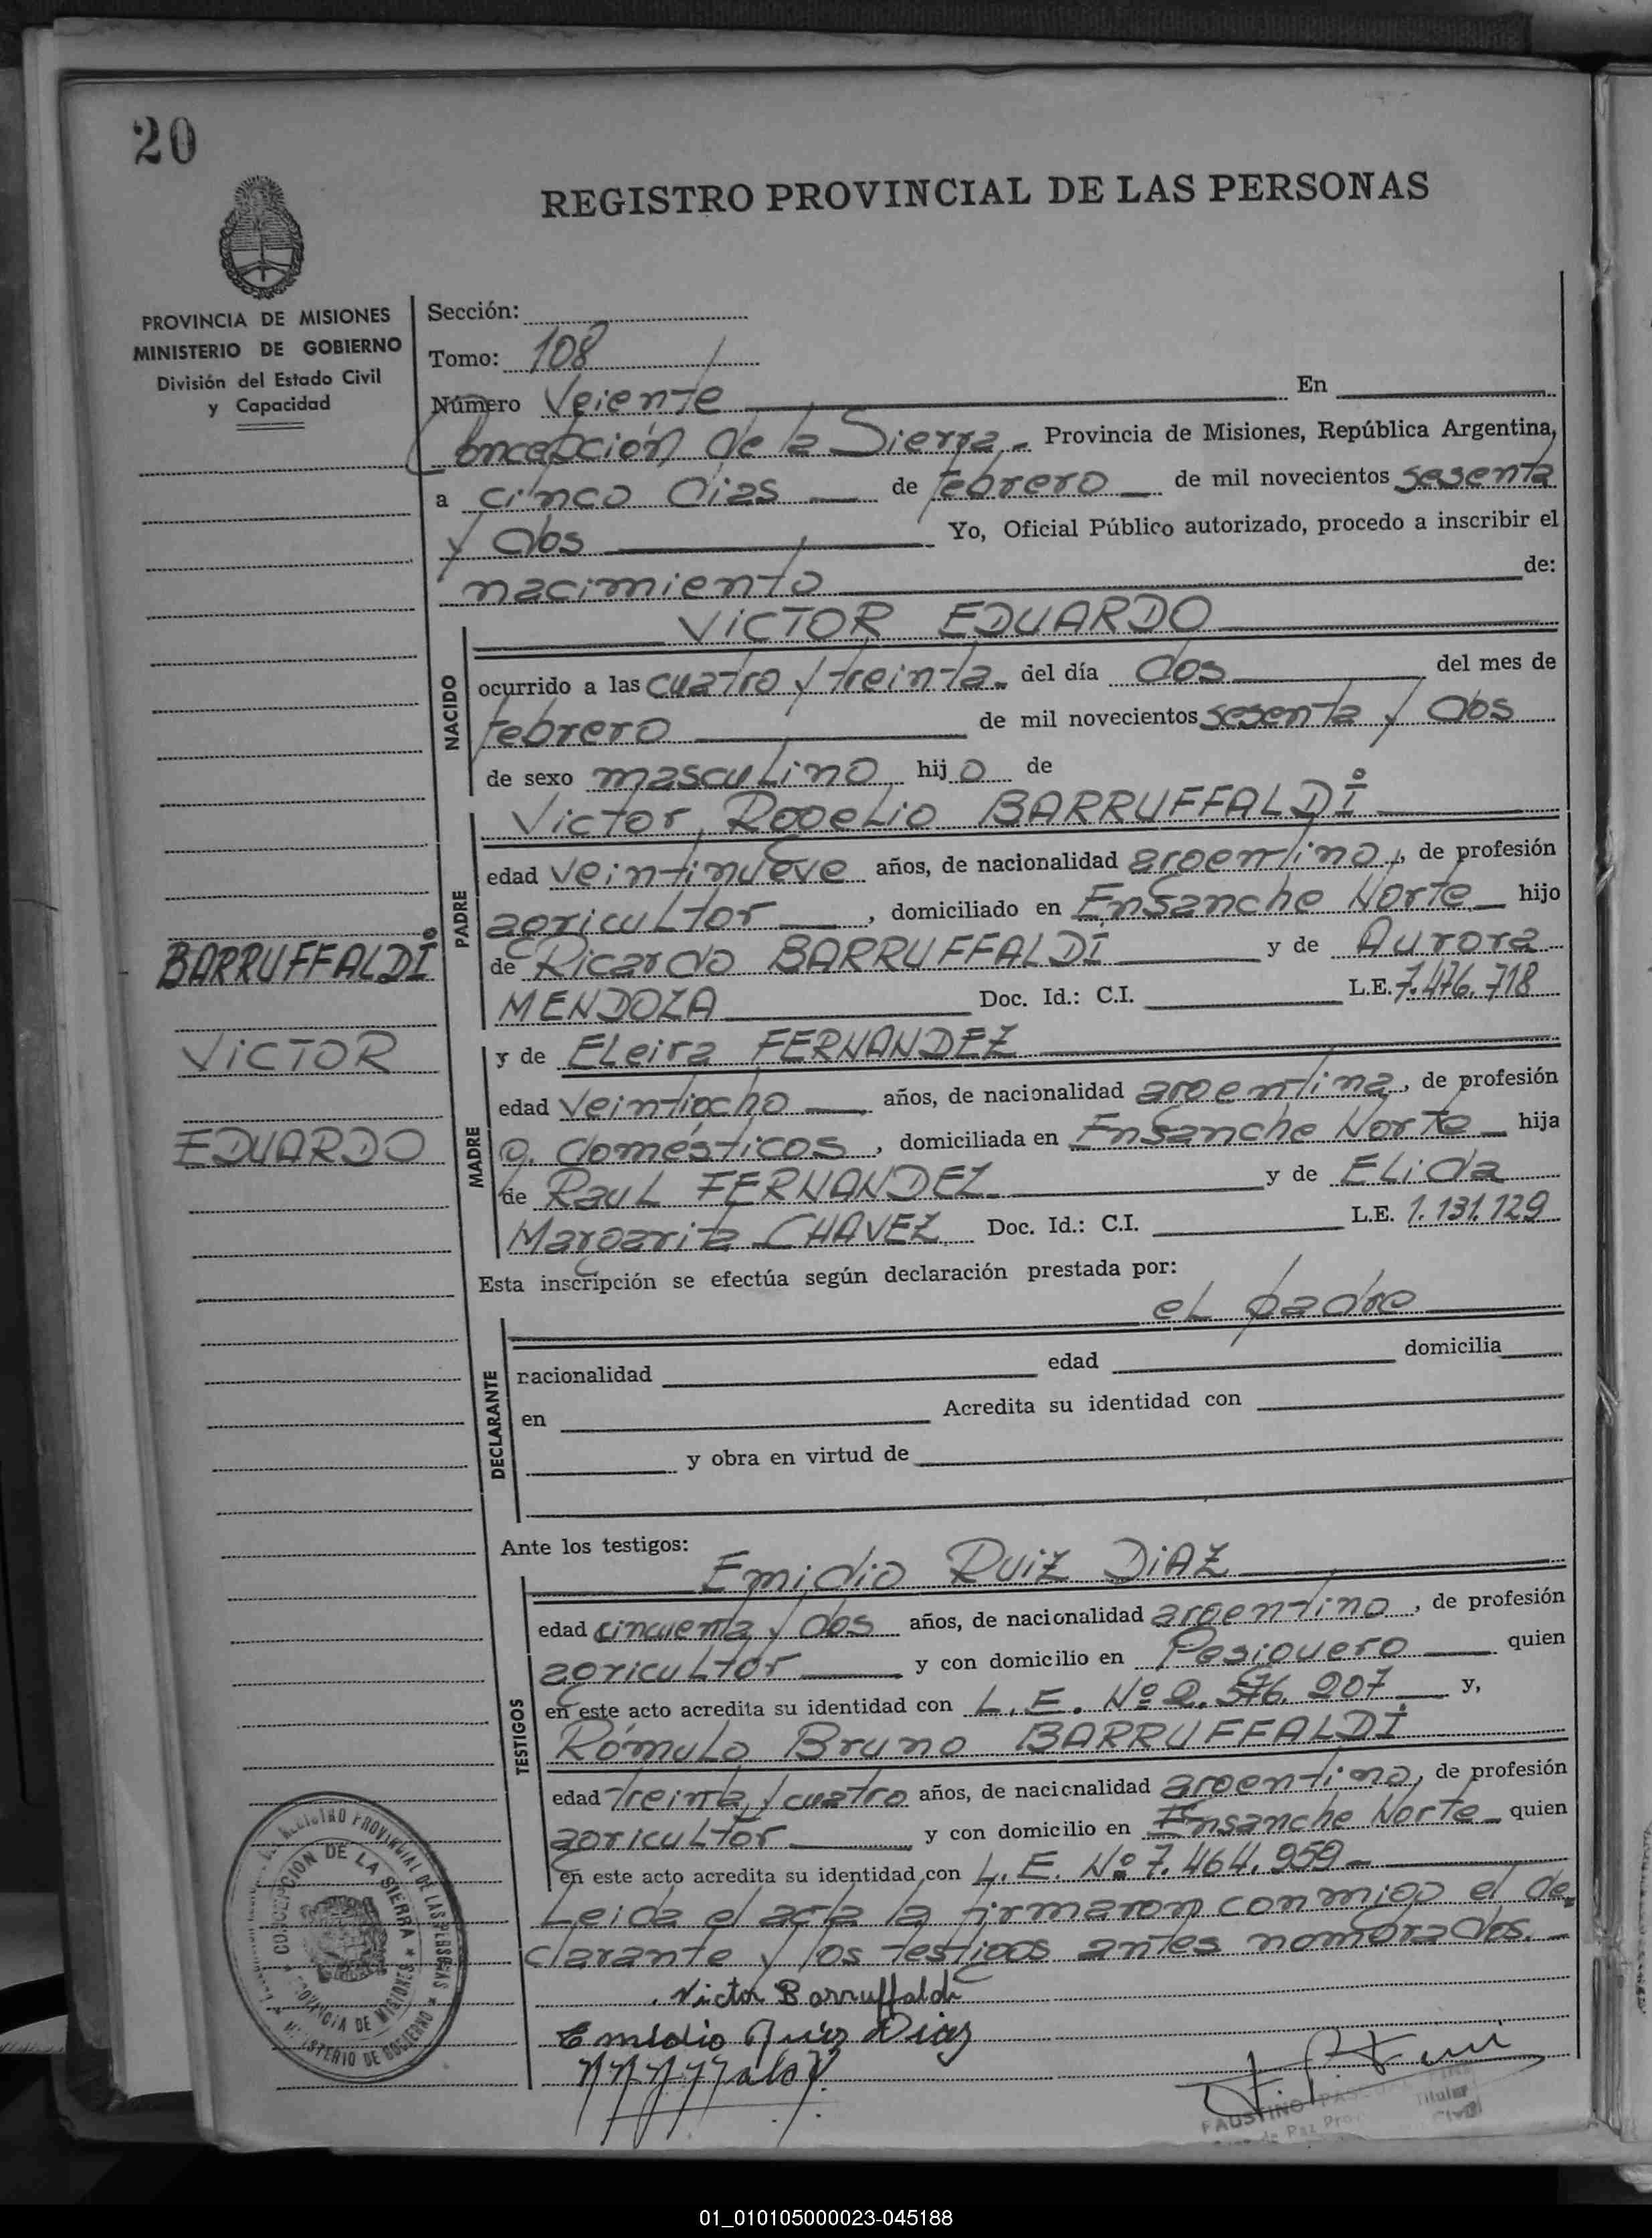 20
REGISTRO PROVINCIAL DE LAS PERSONAS
PROVINCIA DE MISIONES
MINISTERIO DE GOBIERNO
División del Estado Civil
y Capacidad
Sección:
Tomo: 108
Número Veiente En
Concepción de la Sierra.- Provincia de Misiones, República Argentina,
a cinco dias de febrero de mil novecientos sesenta
y dos Yo, Oficial Público autorizado, procedo a inscribir el
nacimiento de:
NACIDO
VICTOR EDUARDO
ocurrido a las cuatro y treinta del día dos del mes de
febrero de mil novecientos sesenta y dos
de sexo masculino hijo de
PADRE
Victor Rogelio BARRUFFALDI
edad veintinueve años, de nacionalidad argentino, de profesión
agricultor, domiciliado en Ensanche Norte hijo
de Ricardo BARRUFFALDI y de Aurora
MENDOZA Doc. Id.: C.I. L.E. 7.476.718
BARRUFFALDI
VICTOR
EDUARDO
MADRE
y de Eleira FERNANDEZ
edad veintiocho años, de nacionalidad argentina, de profesión
q. domésticos, domiciliada en Ensanche Norte hija
de Raul FERNANDEZ y de Elida
Margarita CHAVEZ Doc. Id.: C.I. L.E. 1.131.129
Esta inscripción se efectúa según declaración prestada por:
el padre
DECLARANTE
nacionalidad edad domicilia
en Acredita su identidad con
y obra en virtud de
Ante los testigos:
TESTIGOS
Emidio RUIZ DIAZ
edad cincuenta y dos años, de nacionalidad argentino, de profesión
agricultor y con domicilio en Pesiguero quien
en este acto acredita su identidad con L.E. Nº 2.576.207 y,
Rómulo Bruno BARRUFFALDI
edad treinta y cuatro años, de nacionalidad argentino, de profesión
agricultor y con domicilio en Ensanche Norte quien
en este acto acredita su identidad con L.E. Nº 7.464.959-
Leida el acta la firmaron conmigo el de
clarante y los testigos antes nombrados.
Victor Barruffaldi
Emidio Ruiz Diaz
REGISTRO PROVINCIAL DE LAS PERSONAS
MINISTERIO DE GOBIERNO
CONCEPCION DE LA SIERRA
PROVINCIA DE MISIONES
FAUSTINO
Titular
01_010105000023-045188